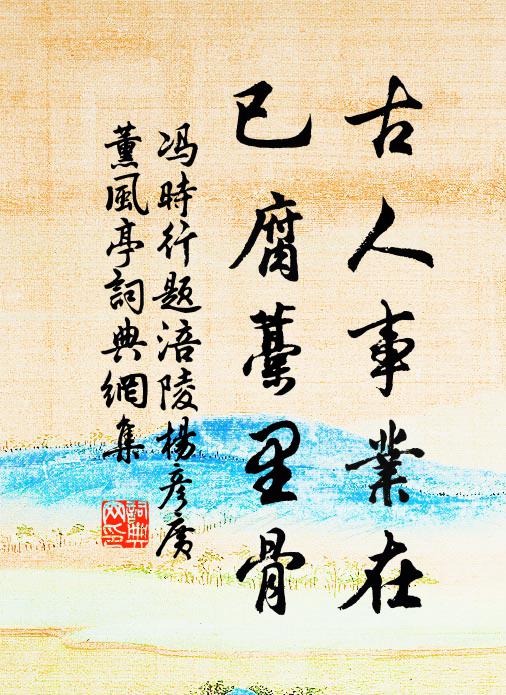 古人事業在
已腐藁里骨
馮時行題涪陵楊彥廣
薰風亭詞典網集
詞典網印